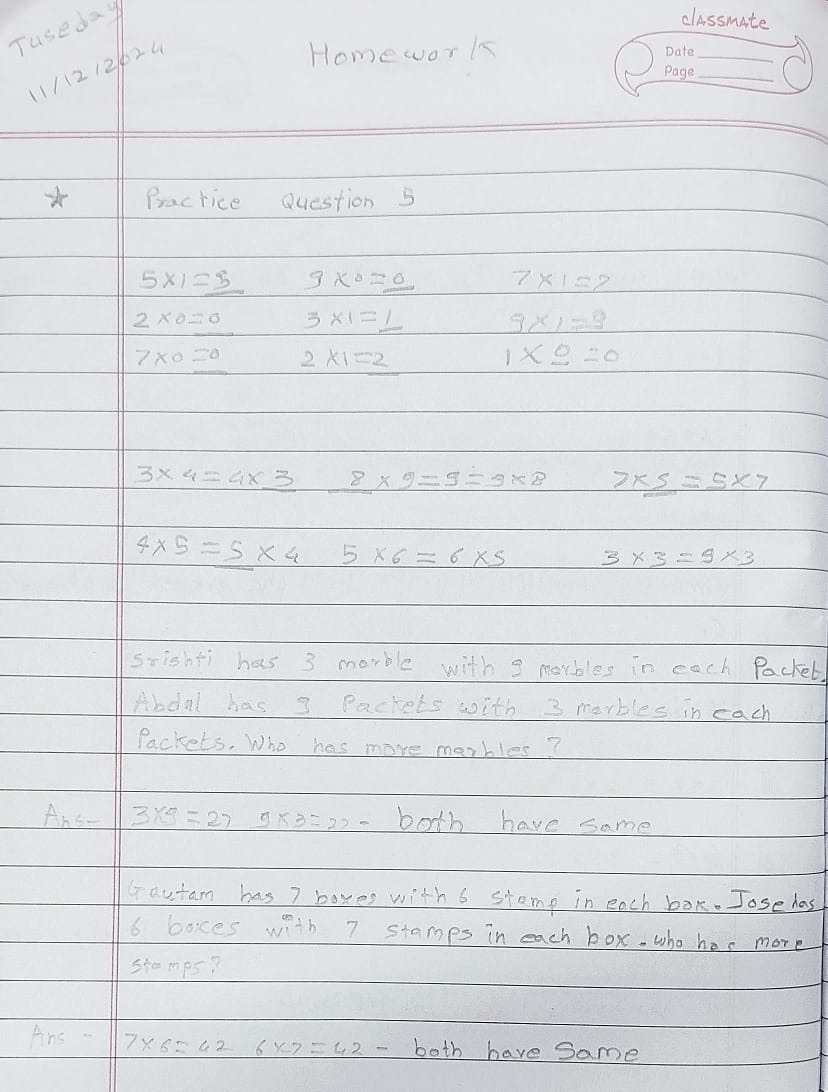 Tuseday
11/12/2024
Homework
classmate
Date
Page
★ Practice Question 5
5×1=5 9×0=0 7×1=7
2×0=0 3×1=1 9×1=9
7×0=0 2×1=2 1×0=0
3×4=4×3 8×9=9=9×8 7×5=5×7
4×5=5×4 5×6=6×5 3×3=9×3
Srishti has 3 marble with 9 marbles in each Packet.
Abdal has 9 Packets with 3 marbles in each
Packets. Who has more marbles?
Ans- 3×9=27 9×3=27- both have same
Gautam has 7 boxes with 6 stamp in each box. Jose has
6 boxes with 7 stamps in each box. who has more
stamps?
Ans - 7×6=42 6×7=42 - both have same